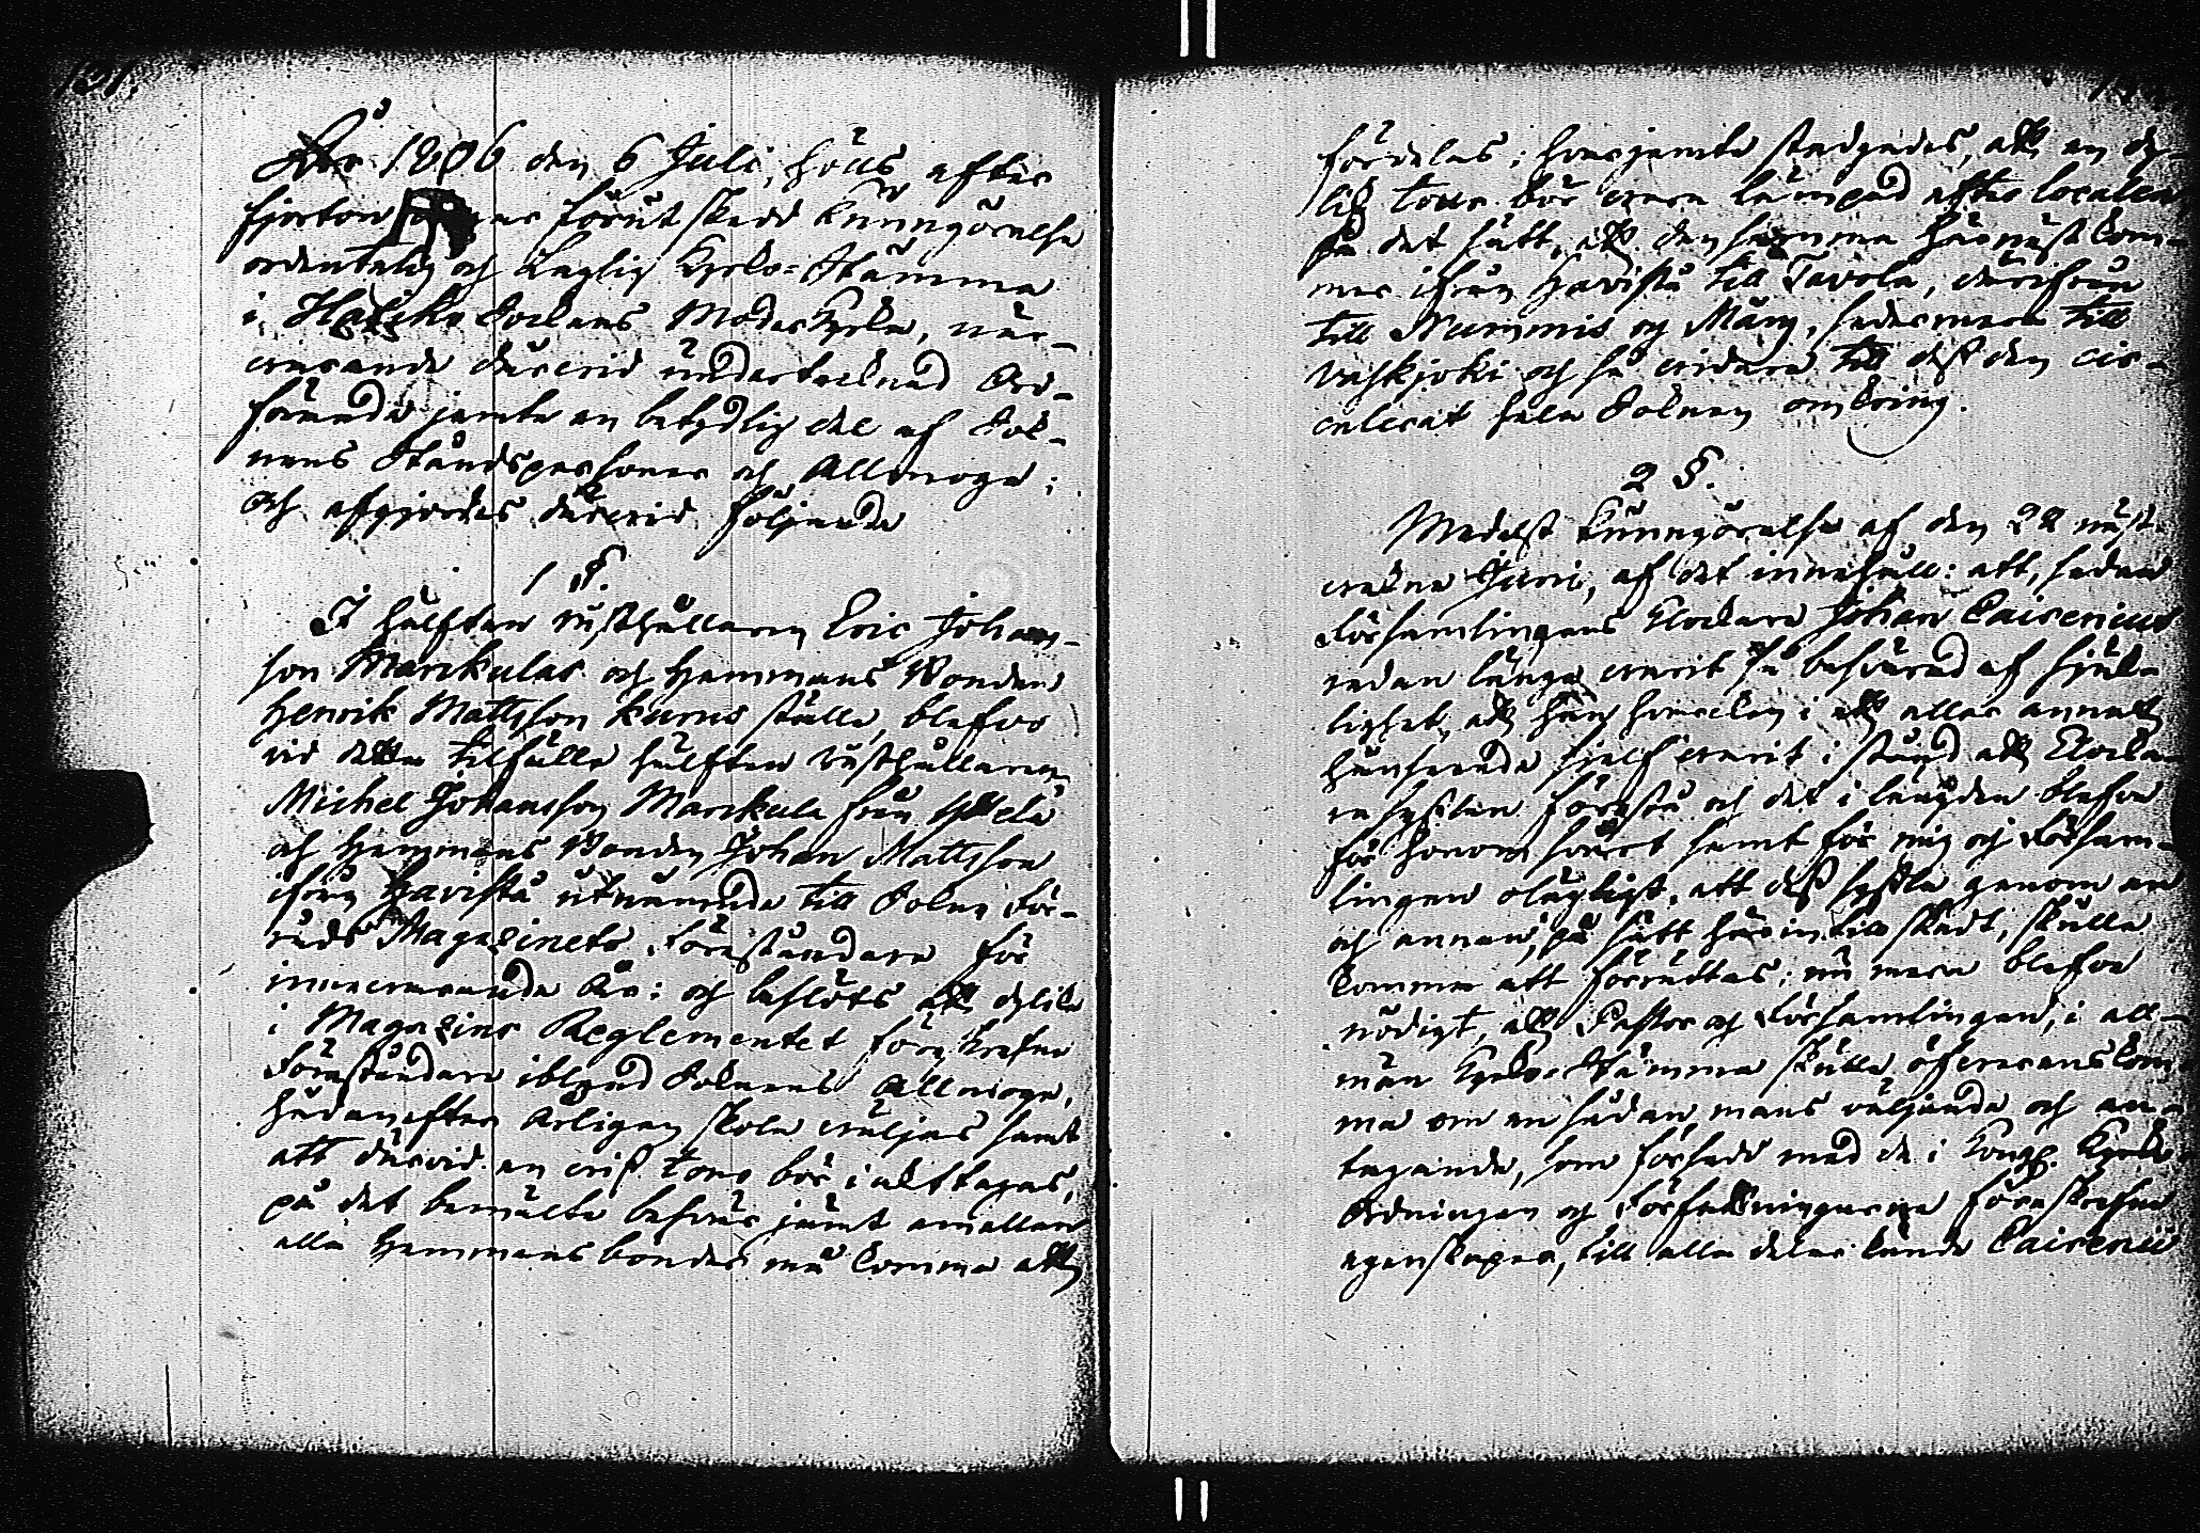 131.
År 1806 den 6 Juli, hölls efter
fjorton dagar förut skedd kungörelse
ordentelig och laglig Kyrko-Stämma
i Haliko Sockens Moder Kyrka, när-
varande dervid undertecknad Ord-
förande jemte en betydlig del af Sock-
nens Ståndspersoner och Allmoge;
och afgjordes dervid följande
1 §.
I hälften rusthållaren Eric Johans-
son Marckulas och Hemmans Bonden
Henrik Mattsson Kurus ställe, blefvo
vid detta tilfälle hälften rusthållaren
Michel Johansson Marckula från
och Hemmans Bonden Johan Mattsson
ifrån Havista utnämnde till Sokne För-
råds Magazinets Föreståndare för
innevarande År: och beslöts att dylike
i Magazins Reglementet föreskrefne
Föreståndare ibland Soknens Allmoge,
hädanefter årligen skola väljas samt
att därvid en viss tour bör i akttagas,
på det bemälte besvär jämt emellan
alla Hemmans bönder må komma att
fördelas; hvarjemte stadgades, att en dy-
lik tour bör vara lämpad efter localen
på det sätt, att densamma härnäst kom-
mer ifrån Havista till Tavola, därifrån
till Nummis och Märy, sedermera till
Vaskjoki och så vidare till dess den cir-
culerat hela Soknen omkring.
2 §.
Medelst Kungörelse af den 22 näst-
vekne Junii, af det innehåll: att, sedan
Församlingens Klockare Johan Cairenius
redan länge varit så besvärad af sjuk-
lighet, att han hvarcken i ett eller annat
hänseende sjelf varit i stånd att Klocka-
re sysslan förestå och det i längden blefve
för honom svårt samt för mig och Försam-
lingen olägligt, att dess syssla genom en
och annan, på sätt här intill skedt, skulle
komma att förrättas; nu mera blefve
nödigt, att Pastor och Församlingen, i all-
män Kyrko-Stämma skulle öfverenskom-
ma om en sådan mans väljande och an-
tagande, som försedd med de i Kongl. Kyrko
Ordningen och Författningarne föreskrefne
egenskaper, till alla delar kunde Cairenii